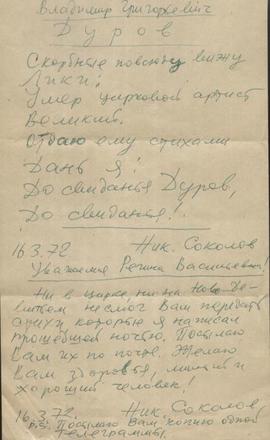 Владимир Григорьевич
Дуров
Скорбные повсюду вижу
Лики:
Умер цирковой артист
Великий.
Отдаю ему стихами
Дань Я!
До свиданья Дуров,
До свиданья!
16.3.72 Ник. Соколов
Уважаемая Регина Васильевна!
Ни в цирке, ни на Ново-Де-
вичьем не смог Вам передать
стихи, которые я написал
прошедшей ночью. Посылаю
Вам их по почте. Желаю
Вам здоровья, милый и
хороший человек!
16.3.72. Ник. Соколов
P.S. Посылаю Вам копию одной
телеграммы.